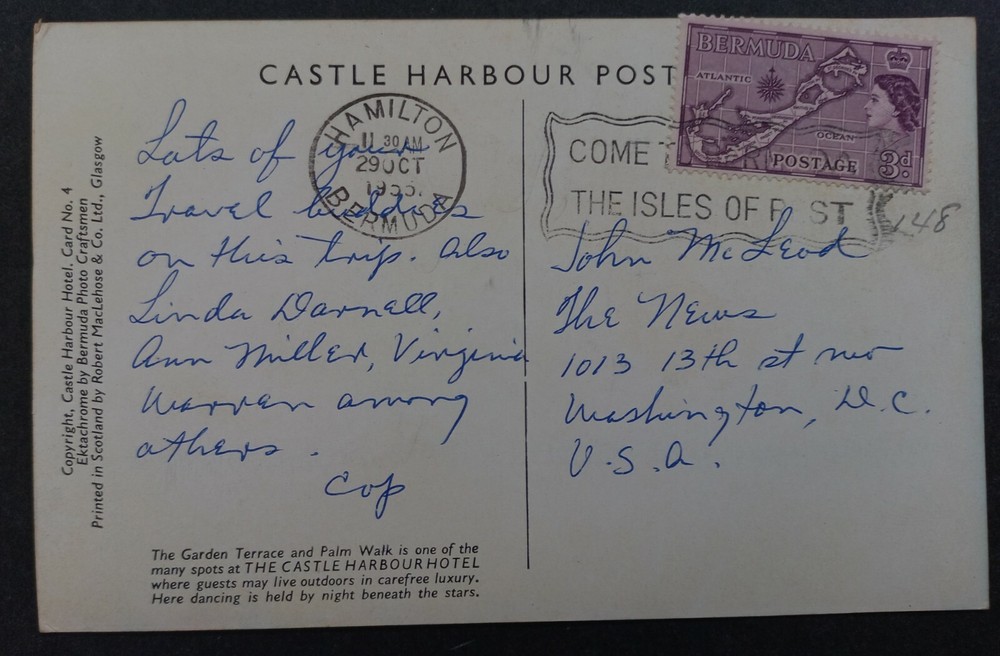 CASTLE HARBOUR POST
BERMUDA
ATLANTIC
OCEAN
POSTAGE 3d
HAMILTON
11 30 AM
29 OCT
BERMUDA
COME
THE ISLES OF R ST
148
Lots of your
Travel buddies
on this trip. Also
Linda Darnell,
Ann Miller, Virginia
Warren among
others.
Cop
John McLeod
The News
1013 13th st nw
Washington, D.C.
U.S.A.
Copyright, Castle Harbour Hotel, Card No. 4
Ektachrome by Bermuda Photo Craftsmen
Printed in Scotland by Robert MacLehose & Co. Ltd., Glasgow
The Garden Terrace and Palm Walk is one of the
many spots at THE CASTLE HARBOUR HOTEL
where guests may live outdoors in carefree luxury.
Here dancing is held by night beneath the stars.